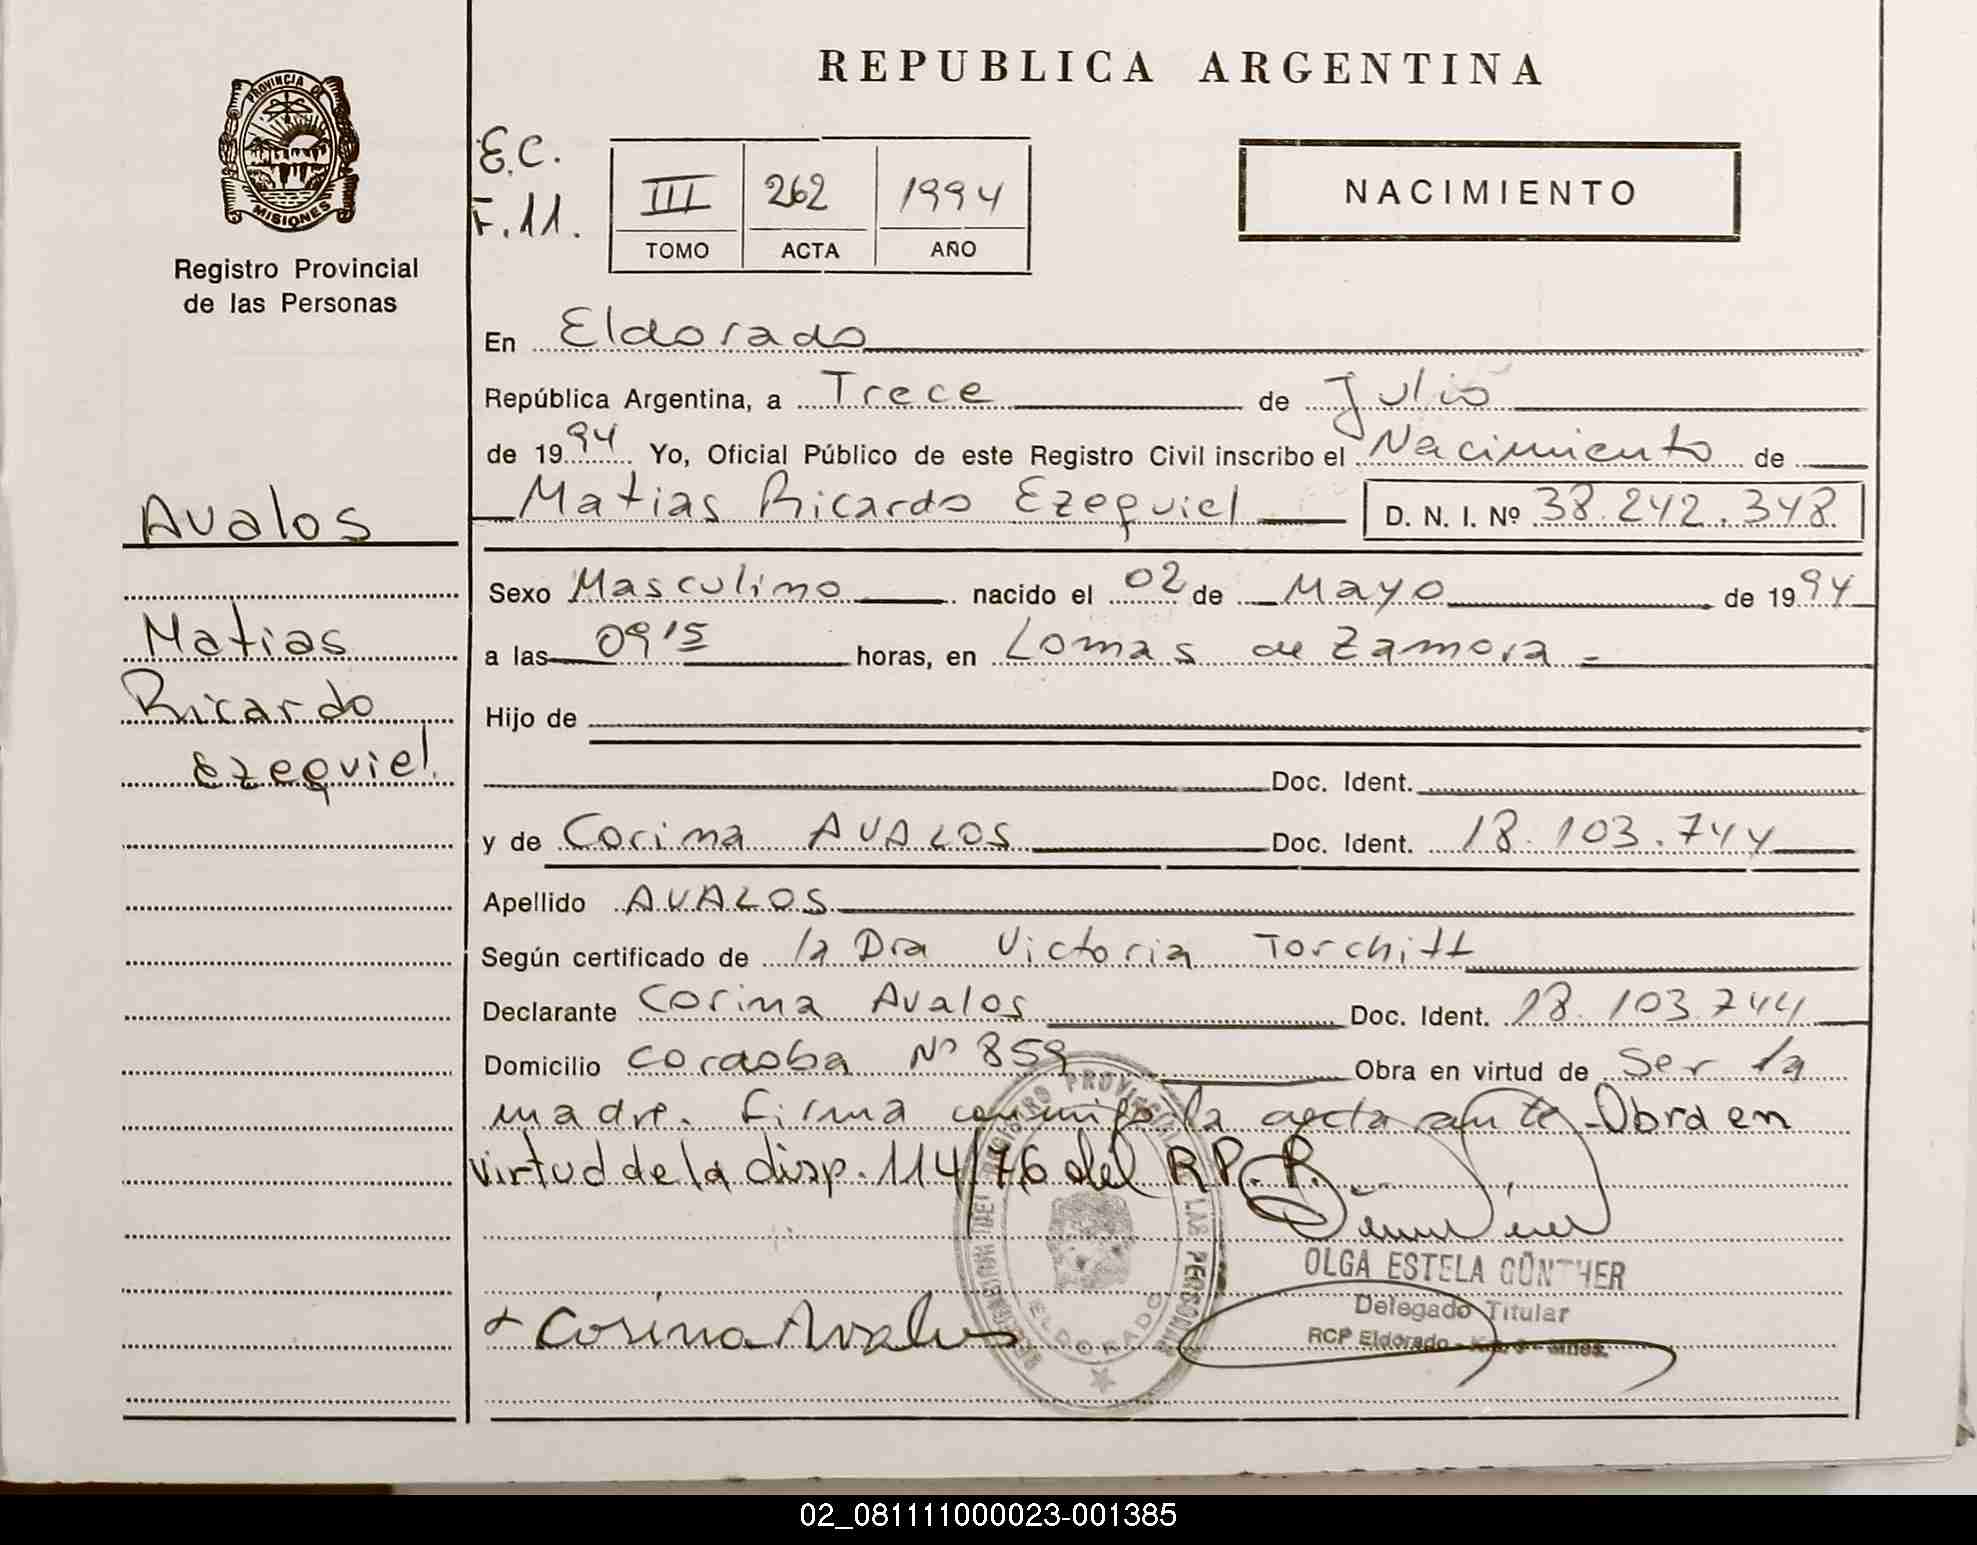 REPUBLICA ARGENTINA
PROVINCIA DE
MISIONES
Registro Provincial
de las Personas
E.C.
F.11.
III 262 1994
TOMO ACTA AÑO
NACIMIENTO
En Eldorado
República Argentina, a Trece de Julio
de 1994 Yo, Oficial Público de este Registro Civil inscribo el Nacimiento de
Matias Ricardo Ezequiel D. N. I. Nº 38.242.348
Avalos
Matias
Ricardo
Ezequiel
Sexo Masculino nacido el 02 de Mayo de 1994
a las 09 15 horas, en Lomas de Zamora
Hijo de
Doc. Ident.
y de Corina AVALOS Doc. Ident. 18.103.744
Apellido AVALOS
Según certificado de la Dra Victoria
Declarante Corina Avalos Doc. Ident. 18.103.744
Domicilio Cordoba Nº 859 Obra en virtud de Ser la
madre. Firma conmigo la acta ante Obra en
virtud de la disp. 114/76 del R.P.P.
OLGA ESTELA GÜNTHER
Delegado Titular
RCP Eldorado
Corina Avalos
ELDORADO
02_081111000023-001385